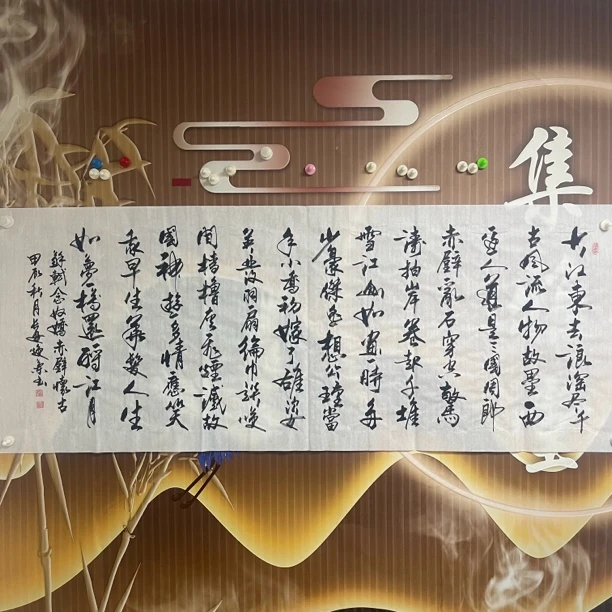 集
大江東去浪淘尽千
古風流人物故壘西
邊人道是三國周郎
赤壁亂石穿空驚
濤拍岸卷起千堆
雪江山如畫一時多
少豪傑遙想公瑾當
年小喬初嫁了雄姿
英發羽扇綸巾談笑
間檣櫓灰飛煙滅故
國神遊多情應笑
我早生華髮人生
如夢一樽還酹江月
蘇軾念奴嬌赤壁懷古
甲辰秋月